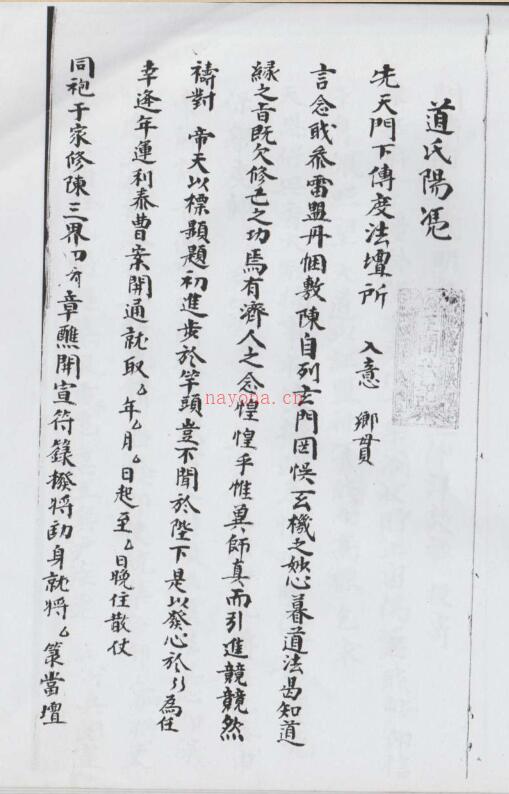 道氏陽憑
先天門下傳度法壇所 入意 鄉貫
言念 叅雷盟丹悃敷陳自列玄門罔悞玄機之妙心暮道法曷知道
緣之旨既欠修 之功焉有濟人之念惶惶乎惟奠師真而引進競競然
禱對 帝天以標顯題初進步於竿頭豈不聞於陛下是以發心於 為任
幸逢年運利泰曹案開通就取厶年厶月厶日起至厶日晚住散仗
同袍于家修陳三界四府章醮開宣符籙撥將助身就將厶籙當壇
nayona.cn